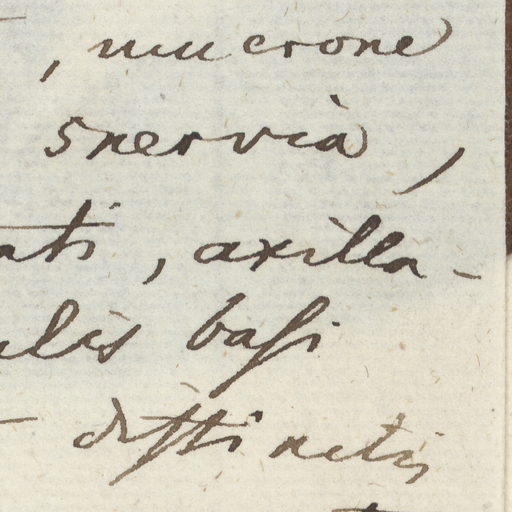 , mucrone
5nervia,
ati, axilla-
ulis basi
distinctis